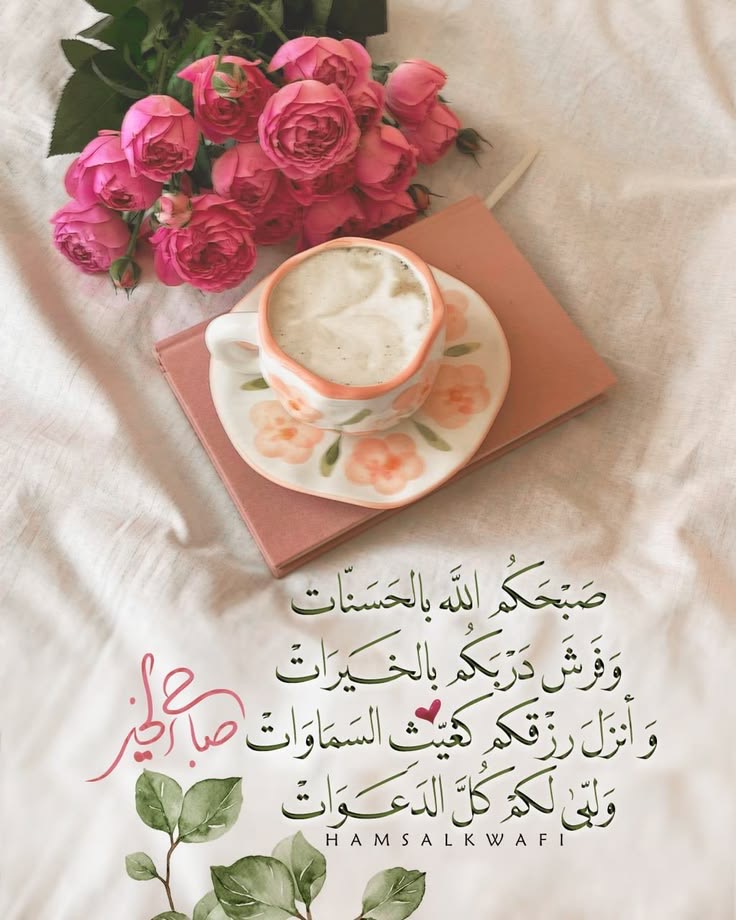 صَبَحَكُم اللَّه بالحَسَنَّات
وَفَرشَ دَرْبَكُم بالخَيرَاتْ
وَ أنزَلَ رزْقكم كغَيّثِ السَمَاوَاتْ
صباح الخير
وَلبّىٰ لكمْ كُلَّ الدَعَوَاتْ
HAMSALKWAFI